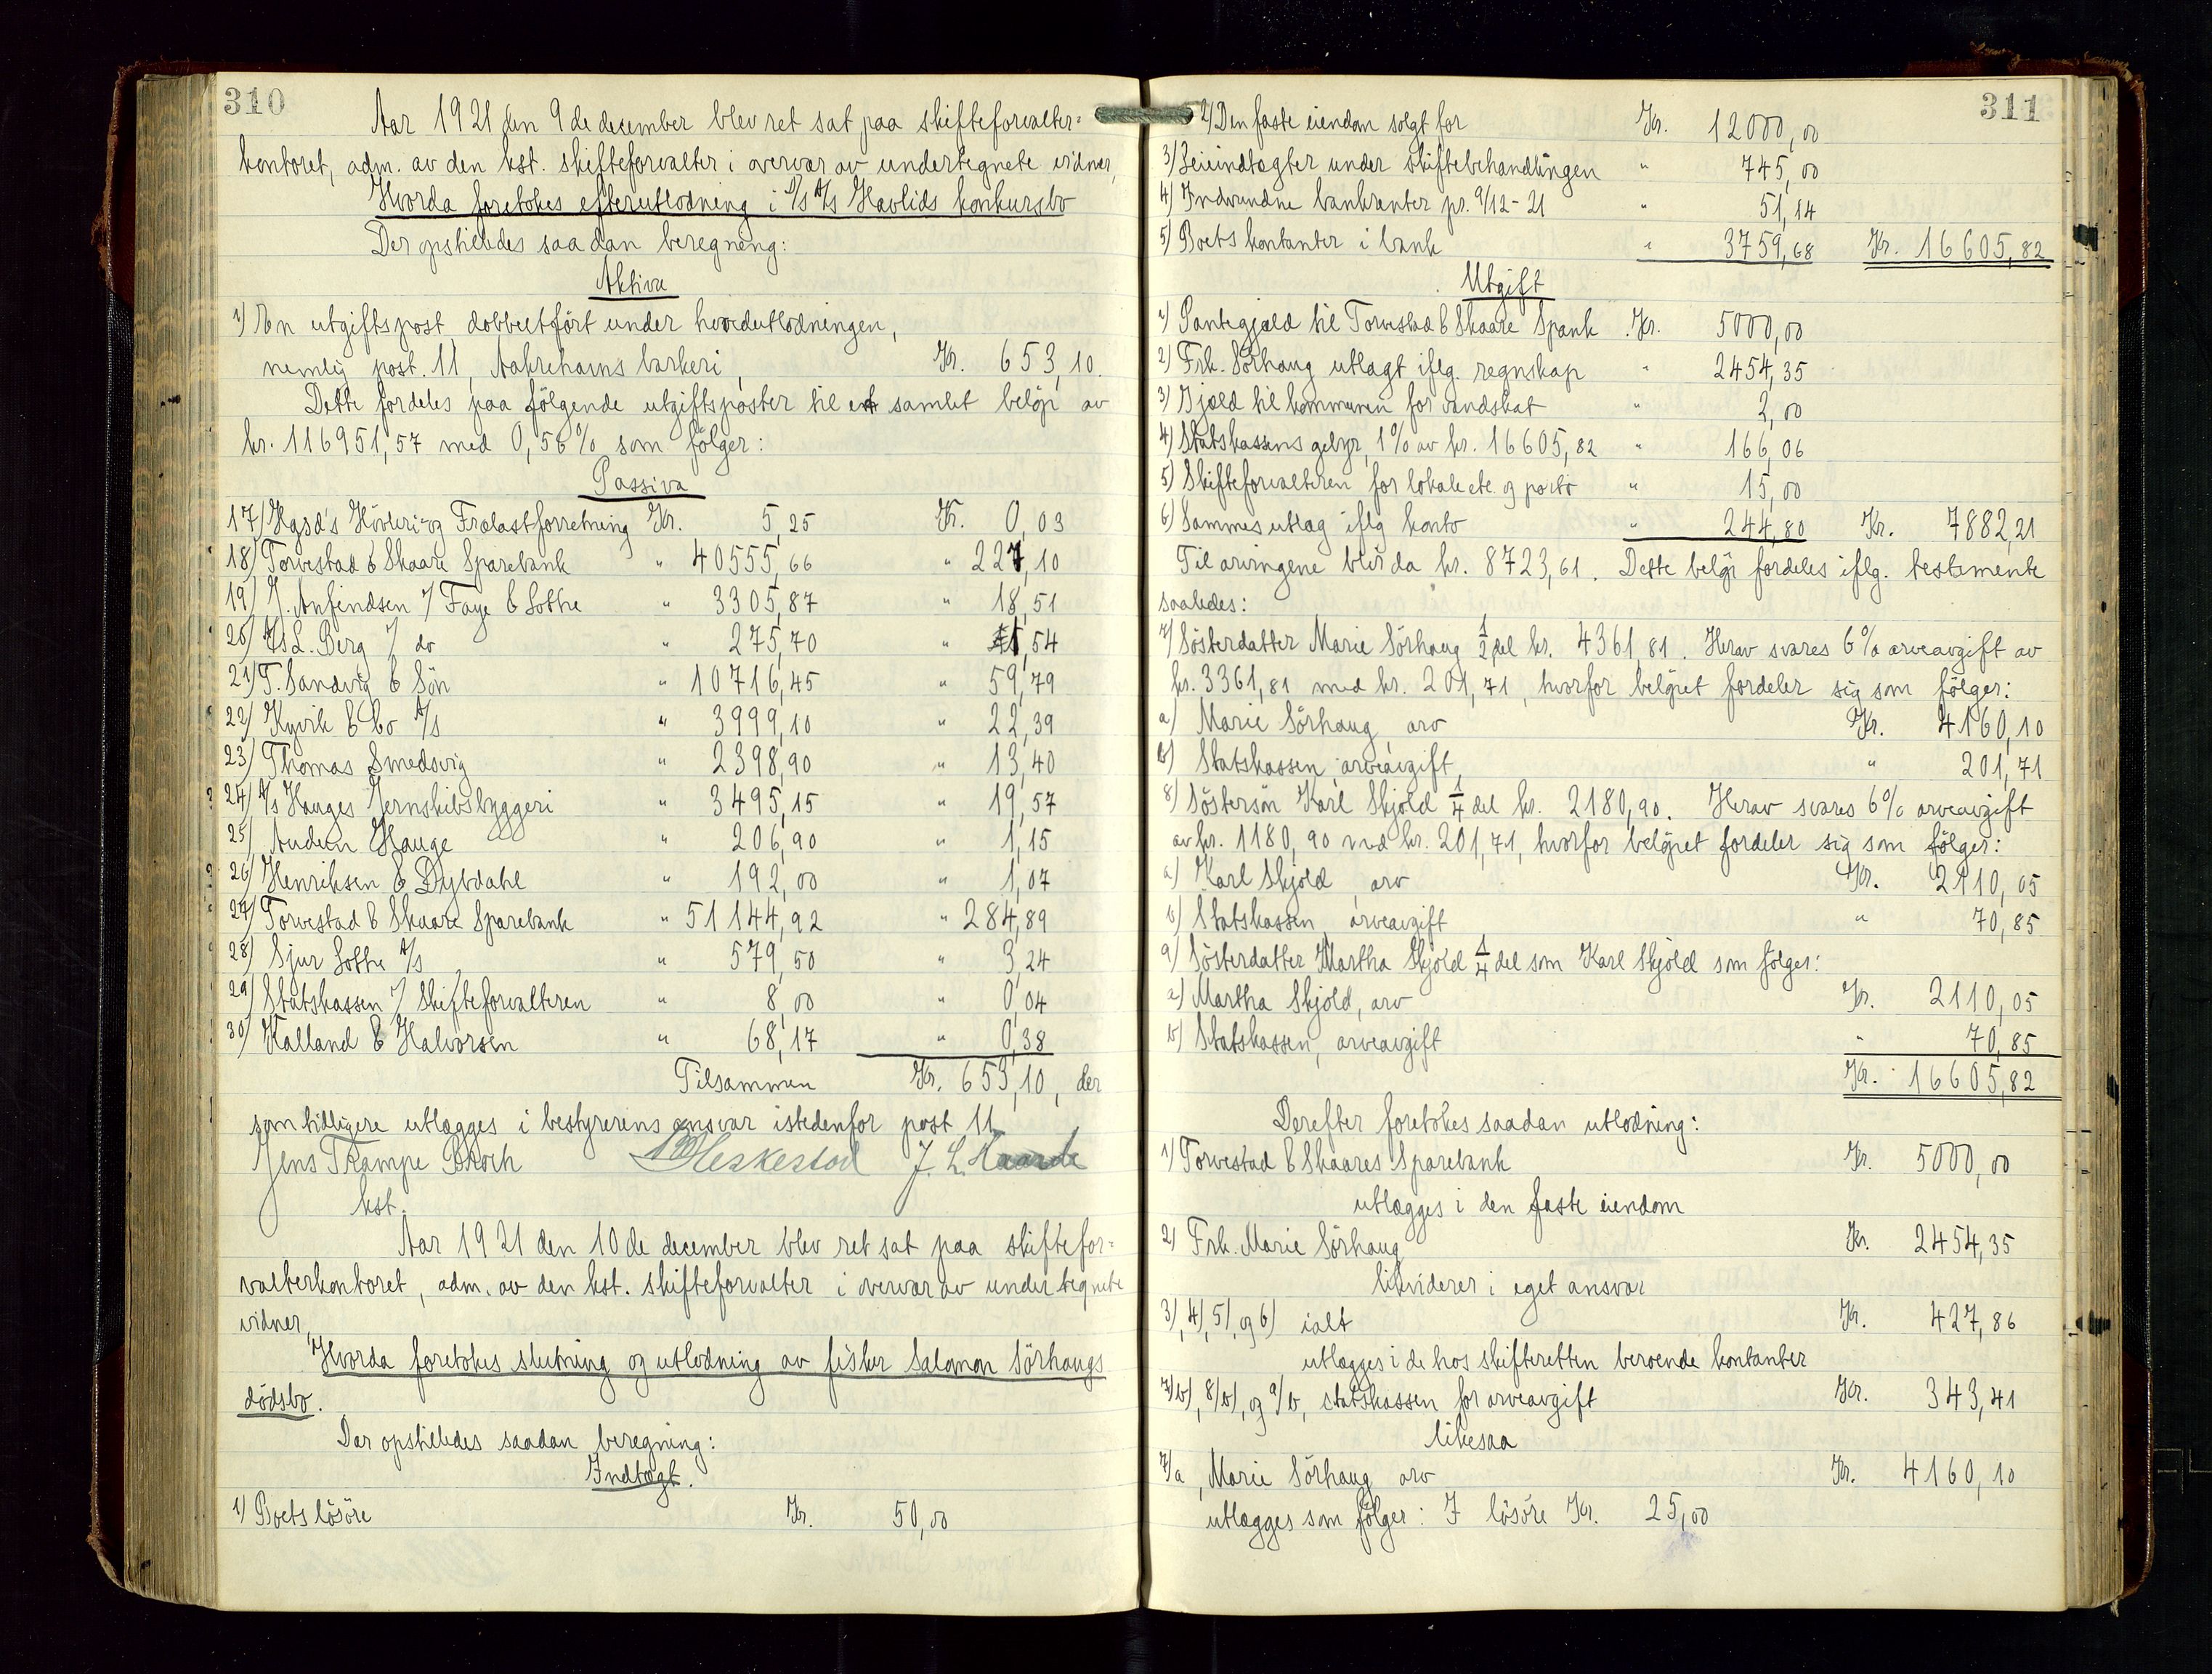 310
Aar 1921 den 9de december blev ret sat paa skifteforvalter=
kontoret, adm. av den kst. skifteforvalter i overvær av undertegnete vidner,
Hvorda foretokes efterutlodning i D/S A/S Havlids konkursbo
Der opstilledes saadan beregning:
Aktiva
1) En utgiftspost dobbeltført under hovedutlodningen,
nemlig post. 11, Aakrehamns barkeri, Kr. 653,10.
Dette fordeles paa følgende utgiftsposter til et samlet beløp av
kr. 116951,57 med 0,56% som følger:
Passiva
17) Hgsd's Høvleri- og Trælastforretning Kr. 5,25 Kr. 0,03
18) Torvestad & Skaare Sparebank " 40555,66 " 227,10
19) J. Anfindsen / Faye & Lothe " 3305,87 " 18,51
20) A/S L. Berg / do " 275,70 " 1,54
21) T. Sandvig & Søn " 10716,45 " 59,79
22) Kyvik & Co A/S " 3999,10 " 22,39
23) Thomas Smedsvig " 2398,90 " 13,40
24) A/S Hauges Jernskibsbyggeri " 3495,15 " 19,57
25) Audun Hauge " 206,90 " 1,15
26) Henriksen & Dybdahl " 192,00 " 1,07
27) Torvestad & Skaare Sparebank " 51144,92 " 284,89
28) Sjur Lothe A/S " 579,50 " 3,24
29) Statskassen / Skifteforvalteren " 8,00 " 0,04
30) Kalland & Halvorsen " 68,17 " 0,38
Tilsammen Kr. 653,10, der
som tidligere utlægges i bestyrerens ansvar istedenfor post 11.
Jens Trampe Broch Heskestad J. L. Haarde
kst.
Aar 1921 den 10de december blev ret sat paa skiftefor=
valterkontoret, adm. av den kst. skifteforvalter i overvær av undertegnete
vidner,
Hvorda foretokes slutning og utlodning av fisker Salomon Sørhaugs
dødsbo.
Der opstilledes saadan beregning:
Indtægt.
1) Boets løsøre Kr. 50,00
311
2) Den faste eiendom solgt for Kr. 12000,00
3) Leieindtægter under skiftebehandlingen " 745,00
4) Indvundne bankrenter pr. 9/12-21 " 51,14
5) Boets kontanter i bank " 3759,68 Kr. 16605,82
Utgift
1) Pantegjæld til Torvestad & Skaare Spbank Kr. 5000,00
2) Frk. Sørhaug utlagt iflg. regnskap " 2454,35
3) Gjæld til kommunen for vandskat " 2,00
4) Statskassens gebyr, 1% av kr. 16605,82 " 166,06
5) Skifteforvalteren for lokale etc. og porto " 15,00
6) Sammes utlæg iflg konto " 244,80 Kr. 7882,21
Til arvingene blir da kr. 8723,61. Dette beløp fordeles iflg. testamente
saaledes:
7) Søsterdatter Marie Sørhaug 1/2 del kr. 4361,81. Herav svares 6% arveavgift av
kr. 3361,81 med kr. 201,71, hvorfor beløpet fordeler sig som følger:
a) Marie Sørhaug, arv Kr. 4160,10
b) Statskassen, arveavgift, " 201,71
8) Søstersøn Karl Skjold 1/4 del kr. 2180,90. Herav svares 6% arveavgift
av kr. 1180,90 med kr. 201,71, hvorfor beløpet fordeler sig som følger:
a) Karl Skjold, arv Kr. 2110,05
b) Statskassen, arveavgift " 70,85
9) Søsterdatter Martha Skjold 1/4 del som Karl Skjold som følger:
a) Martha Skjold, arv Kr. 2110,05
b) Statskassen, arveavgift " 70,85
Kr. 16605,82
Derefter foretokes saadan utlodning:
1) Torvestad & Skaares Sparebank Kr. 5000,00
utlægges i den faste eiendom
2) Frk. Marie Sørhaug Kr. 2454,35
likviderer i eget ansvar
3), 4), 5), og 6) ialt Kr. 427,86
utlægges i de hos skifteretten beroende kontanter
7/b), 8/b), og 9/b, statskassen for arveavgift Kr. 343,41
likesaa
7/a, Marie Sørhaug arv Kr. 4160,10
utlægges som følger: I løsøre Kr. 25,00